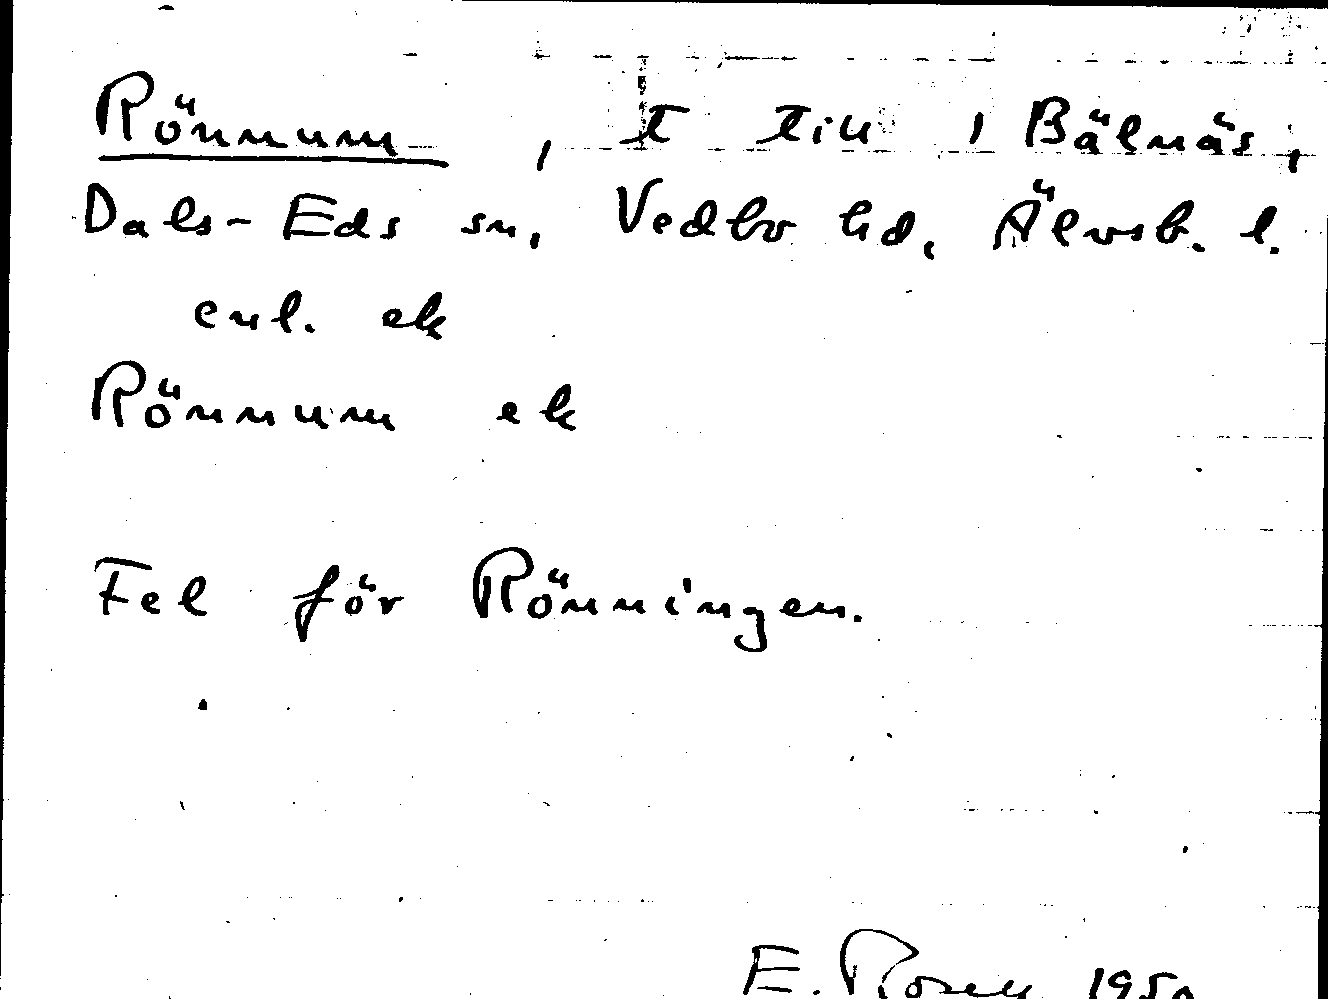 Rönnum, t till 1 Bälnäs,
Dals-Eds sn, Vedbo hd, Älvsb. l.
enl. ek
Rönnum ek
Fel för Rönningen.
E. Rosell 1950